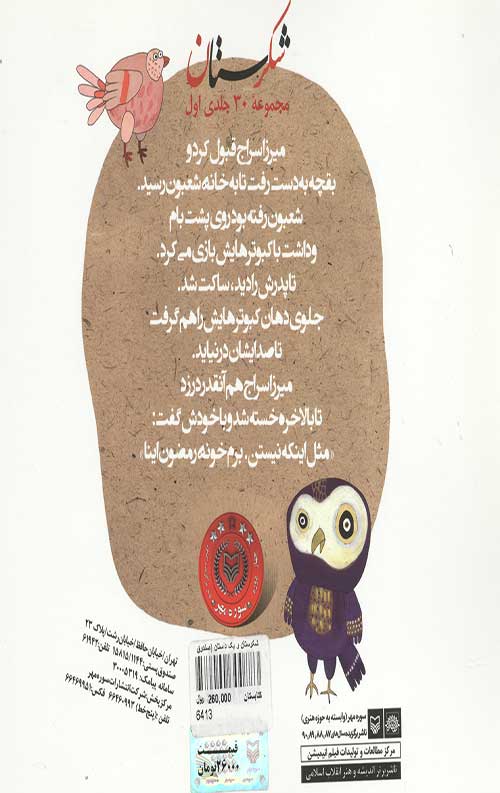 شکرستان
مجموعهٔ ۳۰ جلدی اول
میرزا سراج قبول کرد و
بقچه به دست رفت تا به خانه شعبون رسید.
شعبون رفته بود روی پشت بام
و داشت با کبوترهایش بازی می‌کرد.
تا پدرش را دید، ساکت شد.
جلوی دهان کبوترهایش را هم گرفت
تا صدایشان در نیاید.
میرزا سراج هم آنقدر در زد
تا بالاخره خسته شد و با خودش گفت:
«مثل اینکه نیستن. برم خونه رمضون اینا»
سوره مهر
تهران/خیابان حافظ/خیابان رشت/پلاک ۲۳
صندوق پستی: ۱۵۸۱۵/۱۱۴۴ تلفن: ۶۱۹۴۲
سامانه پیامک: ۳۰۰۰۵۳۱۹
مرکز پخش: شرکت انتشارات سوره مهر
تلفن: (پنج خط) ۶۶۴۶۰۹۹۳ فکس: ۶۶۴۶۹۹۵۱
شکرستان و یک داستان (صندوق
کتابستان 260,000 ریال
6413
قیمت
۲۶۰۰۰ تومان
سوره مهر (وابسته به حوزه هنری)
ناشر برگزیده سال‌های
مرکز مطالعات و تولیدات فیلم انیمیشن
ناشر برتر اندیشه و هنر انقلاب اسلامی